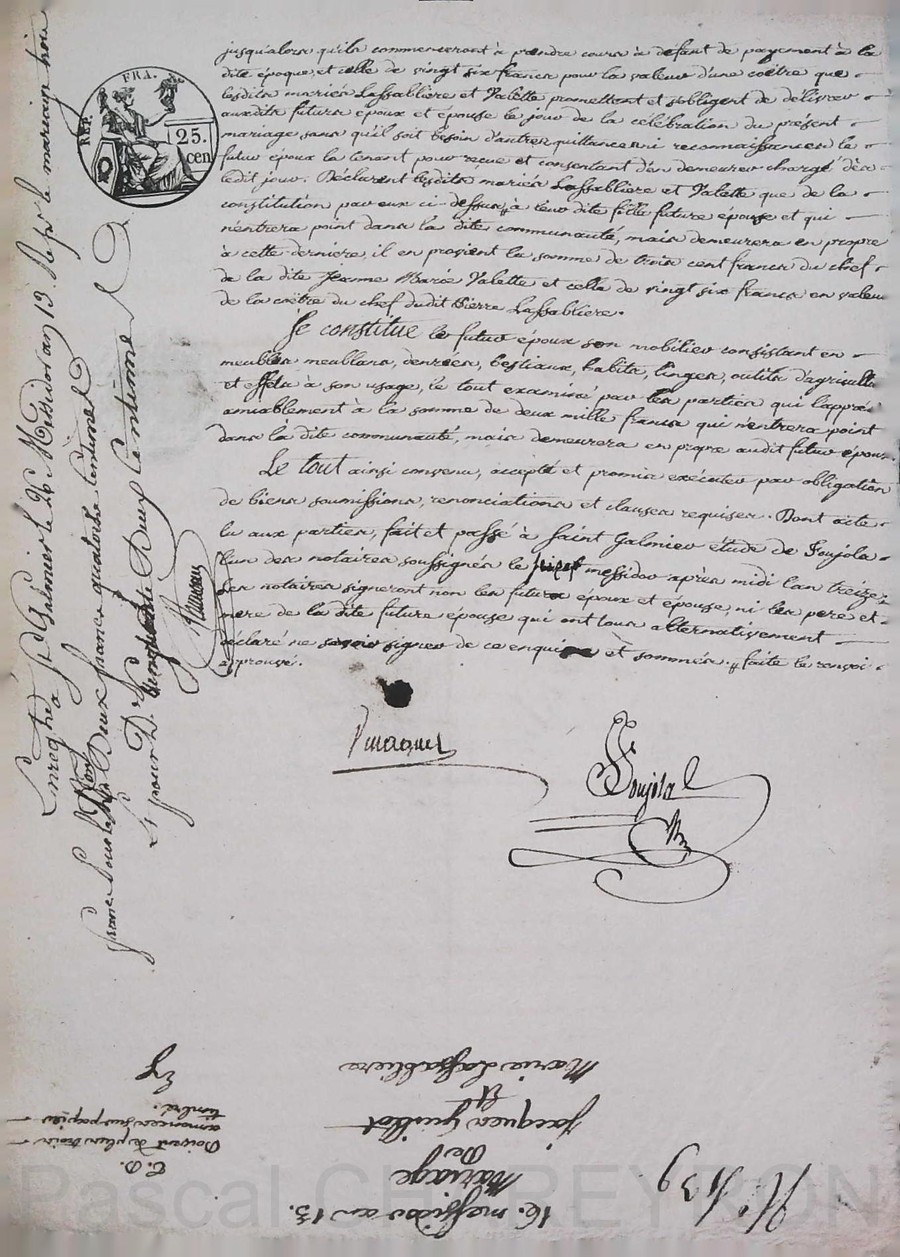 jusqu'alors qu'ils commenceront à prendre cours à défaut de payement à la
dite époque, et celle de vingt six francs pour la valeur d'une coëtre que
lesdits mariés Lassablière et Valette promettent et s'obligent de délivrer
auxdits futurs époux et épouse le jour de la célébration du présent
mariage sans qu'il soit besoin d'autres quittances ni reconnaissances le
futur époux la tenant pour reçue et consentant d'en demeurer chargé dès
ledit jour. Déclarent lesdits mariés Lassablière et Valette que de la
constitution par eux ci-dessus à leur dite fille future épouse et qui
n'entrera point dans la dite communauté, mais demeurera en propre
à cette dernière, il en provient la somme de trois cent francs du chef
de la dite Jeanne Marie Valette et celle de vingt six francs en valeur
de la coëtre du chef dudit Pierre Lassablière.
Se constitue le futur époux son mobilier consistant en
meubles meublans, denrées, bestiaux, habits, linges, outils d'agricult
et effets à son usage, le tout examiné par les parties qui l'appré
amiablement à la somme de deux mille francs qui n'entrera point
dans la dite communauté, mais demeurera en propre audit futur époux.
Le tout ainsi convenu, accepté et promis exécuter par obligation
de biens soumissions, renonciations et clauses requises. Dont acte
lu aux parties, fait et passé à Saint Galmier étude de Soujola
l'un des notaires soussignés le messidor après midi l'an treize;
les notaires signeront non les futurs époux et épouse, ni les père et
mère de la dite future épouse qui ont tous alternativement
déclaré ne savoir signer de ce enquis et sommés. faite le renvoi
approuvé.
Soujola
REP. FRA.
25. cen
Enregtré à St Galmier le 26 Messidor an 13. Reçu pr le mariage trois
francs pour le Deux francs quatorze Centimes
Et pour D. Deux Centimes
Marie Lassablière
Et
Jacques Guillot
De
Mariage
16. messidor an 13.
N. 139
Pascal CHAREYRON